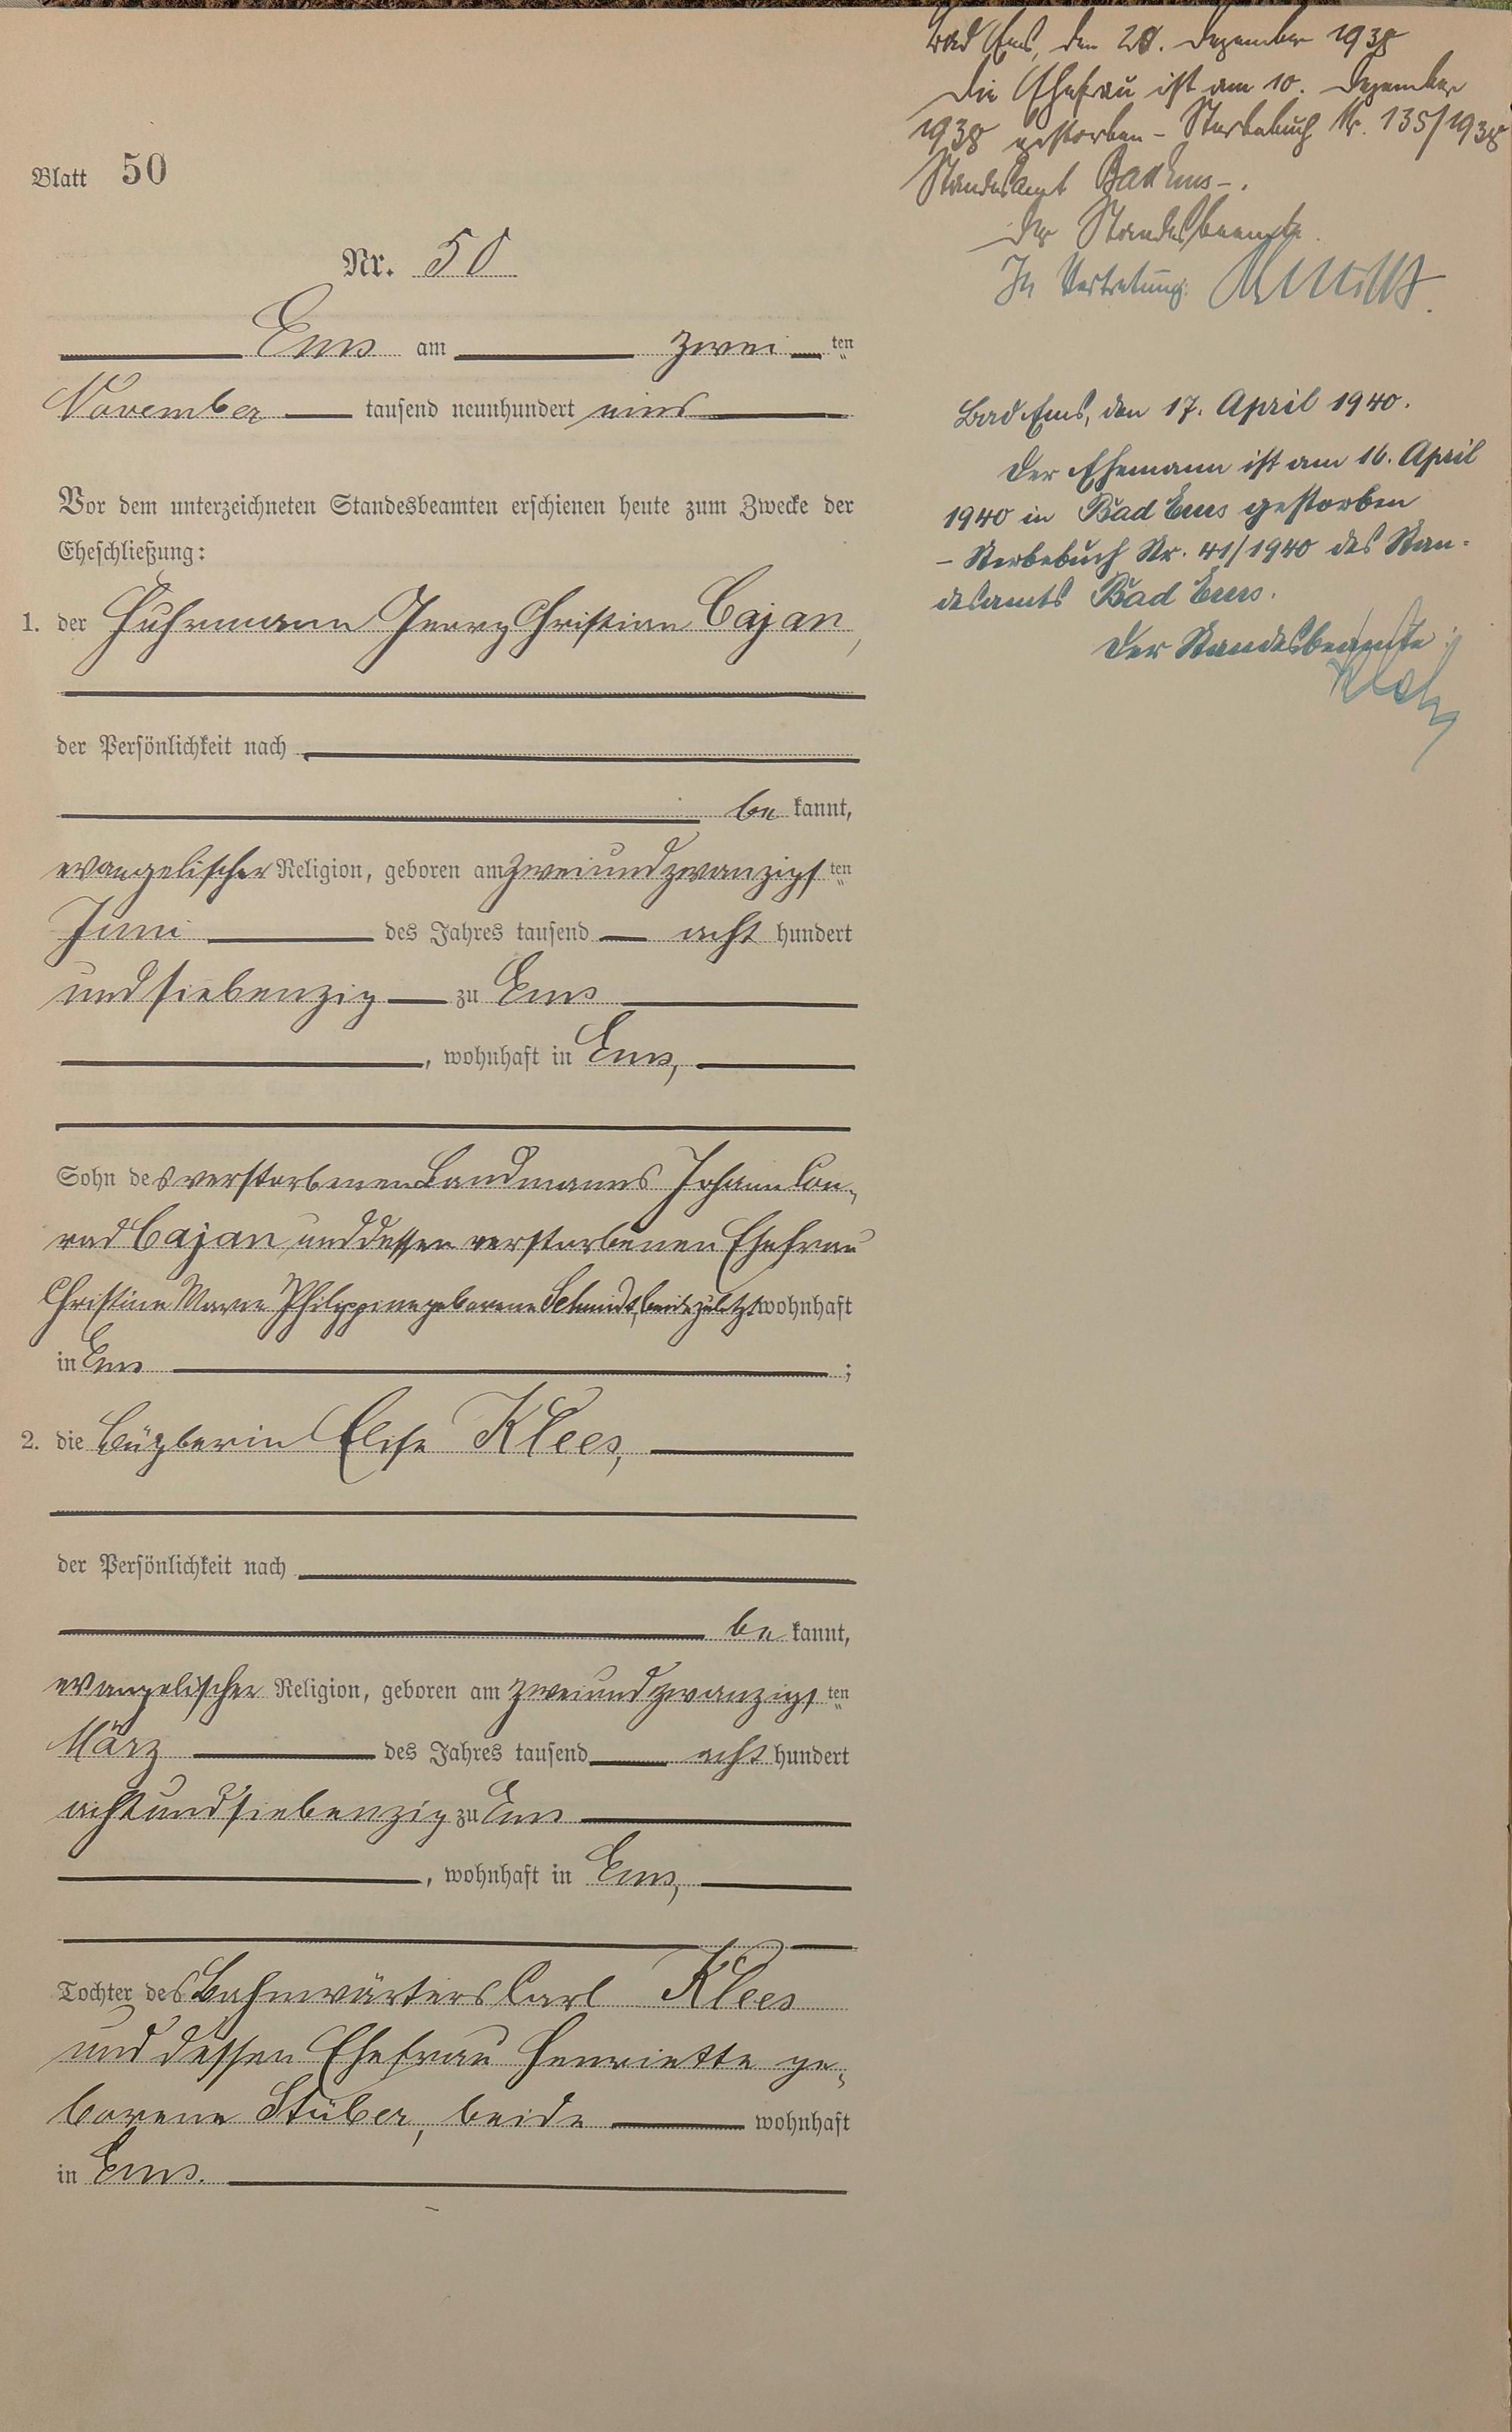 Blatt 50
Nr. 50
Ems am zwei ten
November tausend neunhundert eins
Vor dem unterzeichneten Standesbeamten erschienen heute zum Zwecke der
Eheschließung:
1. der Fuhrmann Georg Christian Cajan,
der Persönlichkeit nach
be kannt,
evangelischer Religion, geboren am zweiundzwanzigs ten
Juni des Jahres tausend acht hundert
und siebenzig zu Ems
, wohnhaft in Ems,
Sohn des verstorbenen Landmanns Johann Con-
rad Cajan und dessen verstorbenen Ehefrau
Christine Marie Philippine geborene Schmidt, beide zuletzt wohnhaft
in Ems ;
2. die Büglerin Elise Klees,
der Persönlichkeit nach
be kannt,
evangelischer Religion, geboren am zweiundzwanzigs ten
März des Jahres tausend acht hundert
achtundsiebenzig zu Ems
, wohnhaft in Ems,
Tochter des Bahnwärters Carl Klees
und dessen Ehefrau Henriette ge-
borene Stüber, beide wohnhaft
in Ems.
Bad Ems, den 20. Dezember 1938
Die Ehefrau ist am 10. Dezember
1938 gestorben - Sterbebuch Nr. 135/1938
Standesamt Bad Ems -.
Der Standesbeamte.
In Vertretung:
Bad Ems, den 17. April 1940.
Der Ehemann ist am 16. April
1940 in Bad Ems gestorben
- Sterbebuch Nr. 41/1940 des Stan-
desamts Bad Ems.
Der Standesbeamte: